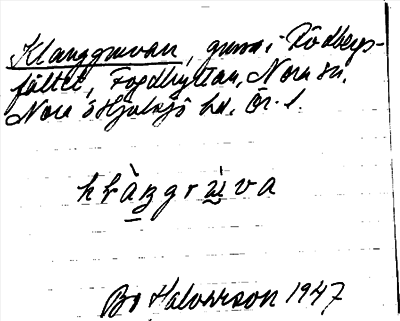 Klanggruvan, gruva i Rödbergs-
fältet, Fogdhyttan, Nora sn.
Nora o Hjulsjö hd. Ör. l.
Bo Halvarsson 1947